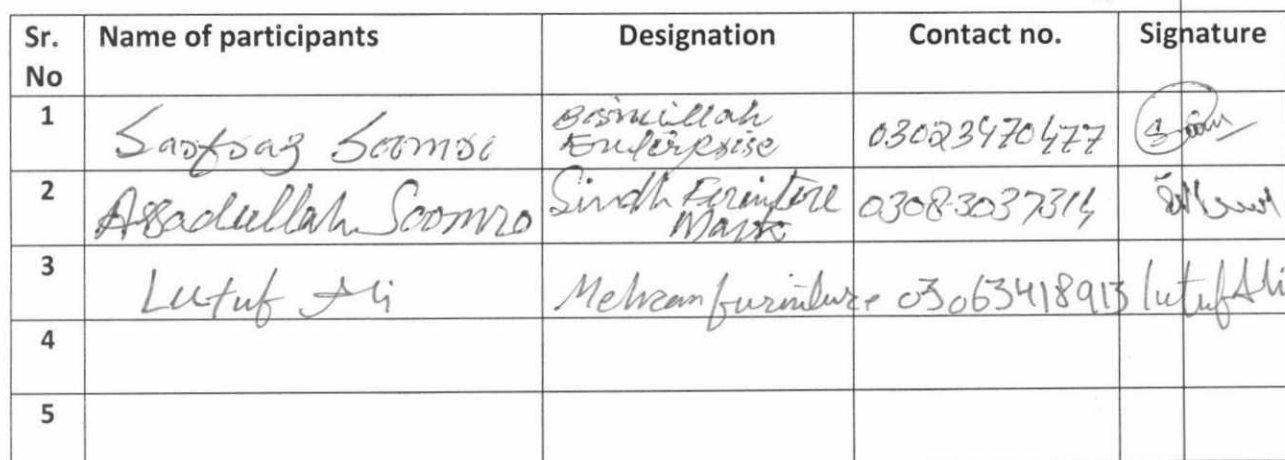 Sr. No Name of participants Designation Contact no. Signature
1 Sarfraz Soomro Bismillah Enterprise 03023470477
2 Assadullah Soomro Sindh Ferinture Mart 03083037314
3 Lutuf Ali Mehran furniture 03063418913 lutuf Ali
4
5